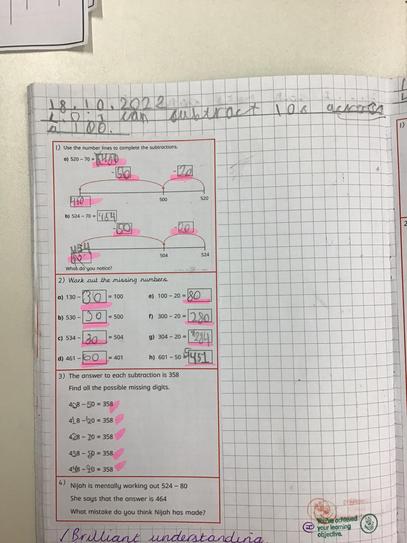 18.10.2022
L.O. I can subtract 10s across
a 100.
1) Use the number lines to complete the subtractions.
a) 520 – 70 = 450
-50 -20
450 500 520
b) 524 – 70 = 454
-50 -20
454 504 524
What do you notice?
2) Work out the missing numbers.
a) 130 – 30 = 100 e) 100 – 20 = 80
b) 530 – 30 = 500 f) 300 – 20 = 280
c) 534 – 30 = 504 g) 304 – 20 = 284
d) 461 – 60 = 401 h) 601 – 50 =
3) The answer to each subtraction is 358
Find all the possible missing digits.
408 – 50 = 358
= 358
= 358
= 358
= 358
4) Nijah is mentally working out 524 – 80
She says that the answer is 464
What mistake do you think Nijah has made?
Brilliant understanding
You've achieved
your learning
objective.